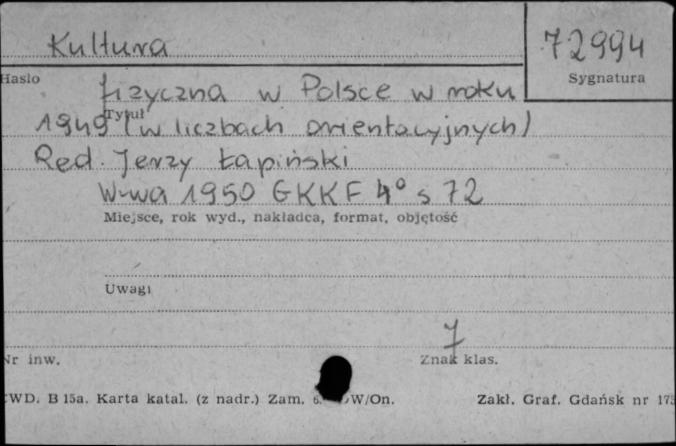 Kultura
72994
Hasło
Sygnatura
fizyczna w Polsce w roku
Tytuł
1949 (w liczbach orientacyjnych)
Red. Jerzy Łapiński
W-wa 1950 GKKF 4° s 72
Miejsce, rok wyd., nakładca, format, objętość
Uwagi
7
Nr inw.
Znak klas.
WD. B 15a. Karta katal. (z nadr.) Zam. W/On.
Zakł. Graf. Gdańsk nr